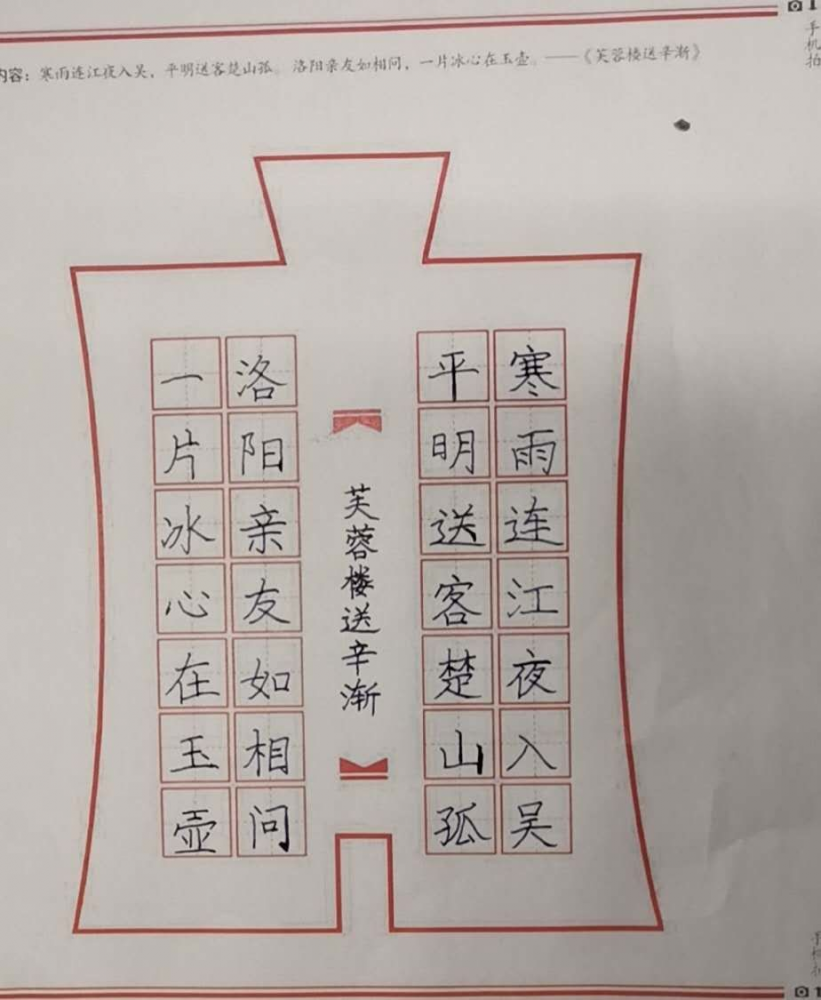 内容：寒雨连江夜入吴，平明送客楚山孤。洛阳亲友如相问，一片冰心在玉壶。——《芙蓉楼送辛渐》
手机拍
寒雨连江夜入吴
平明送客楚山孤
芙蓉楼送辛渐
洛阳亲友如相问
一片冰心在玉壶